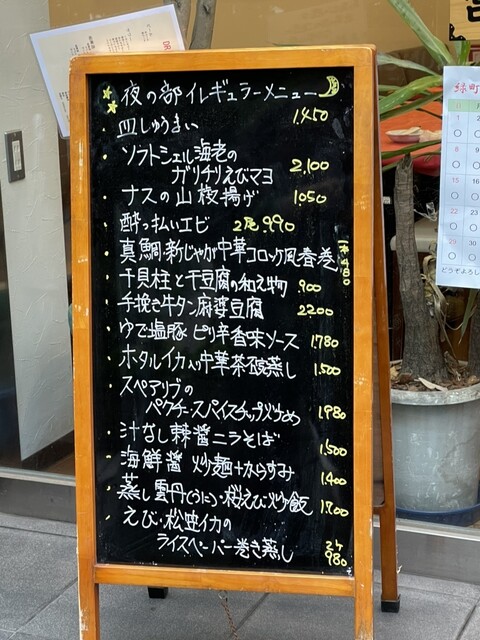 夜の部イレギュラーメニュー
皿しゅうまい 1,450
ソフトシェル海老の
ガリチリえびマヨ 2,100
ナスの山椒揚げ 1,050
酔っ払いエビ 2尾 990
真鯛・新じゃが中華コロッケ風春巻
干貝柱と干豆腐の和え物 900
手挽き牛タン麻婆豆腐 2200
ゆで塩豚 ピリ辛香味ソース 1,780
ホタルイカ入り中華茶碗蒸し 1,500
スペアリブの
パクチースパイスチップ炒め 1,980
汁なし棘醤ニラそば 1,500
海鮮醤 炒麺+からすみ 1,400
蒸し雲丹(うに)・桜えび炒飯 1,700
えび・松笠イカの
ライスペーパー巻き蒸し 2ケ 980
緑町